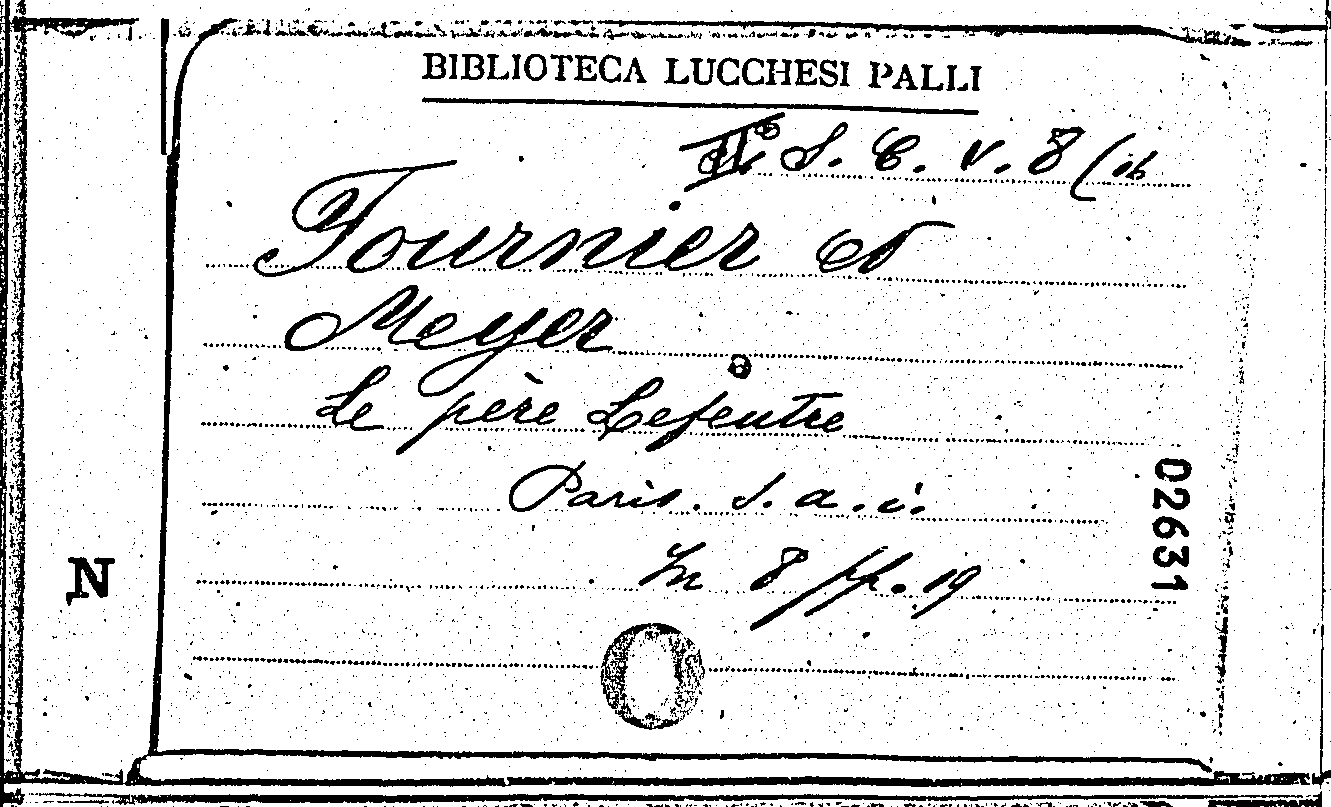 BIBLIOTECA LUCCHESI PALLI
S. C. V. 8 (16
Fournier et
Meyer
Le père Lefeutre
Paris. S. a. i.
In 8 pp. 19
02631
N